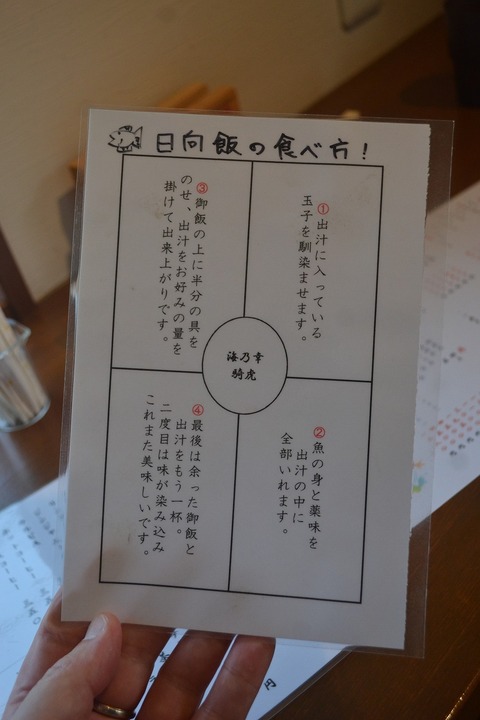 日向飯の食べ方!
①出汁に入っている
玉子を馴染ませます。
②魚の身と薬味を
出汁の中に
全部いれます。
③御飯の上に半分の具を
のせ、出汁をお好みの量を
掛けて出来上がりです。
④最後は余った御飯と
出汁をもう一杯。
二度目は味が染み込み
これまた美味しいです。
海乃幸
騎虎
円